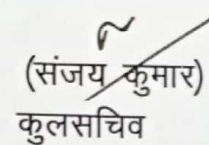 (संजय कुमार)
कुलसचिव